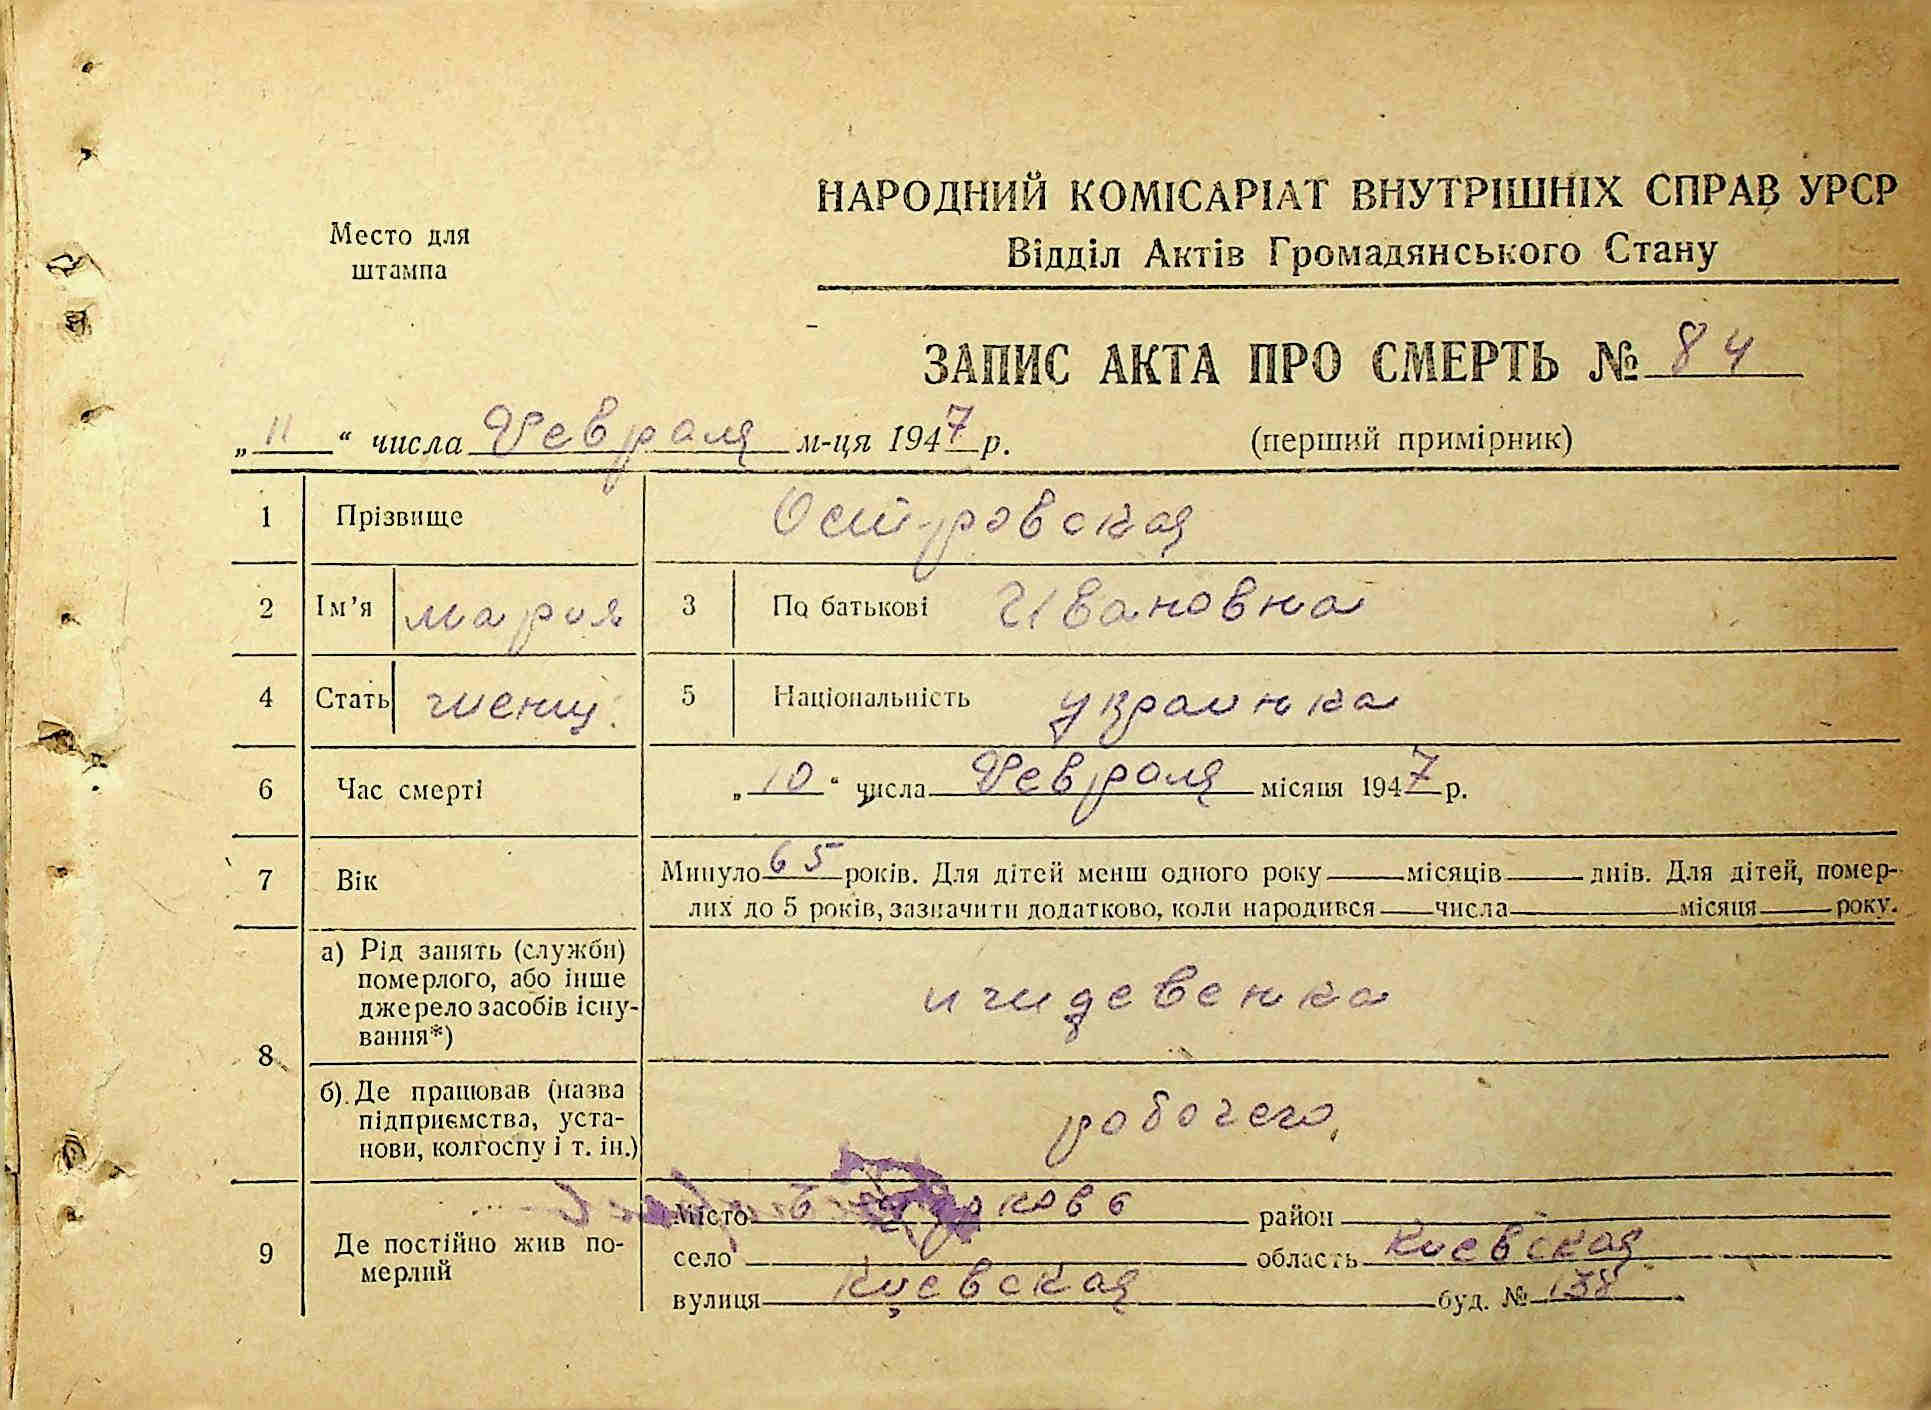 Место для
штампа
НАРОДНИЙ КОМІСАРІАТ ВНУТРІШНІХ СПРАВ УРСР
Відділ Актів Громадянського Стану
ЗАПИС АКТА ПРО СМЕРТЬ № 84
„ 11 “ числа Февраля м-ця 1947 р.
(перший примірник)
1 Прізвище Островская
2 Ім’я мария 3 По батькові Ивановна
4 Стать женщ. 5 Національність украинка
6 Час смерті „ 10 “ числа Февраля місяця 1947 р.
7 Вік Минуло 65 років. Для дітей менш одного року місяців днів. Для дітей, помер-
лих до 5 років, зазначити додатково, коли народився числа місяця року.
8 а) Рід занять (служби)
померлого, або інше
джерело засобів існу-
вання*)
иждевенка
б) Де працював (назва
підприємства, уста-
нови, колгоспу і т. ін.)
рабочего
9 Де постійно жив по-
мерлий
місто район
село область Киевская
вулиця Киевская буд. № 138